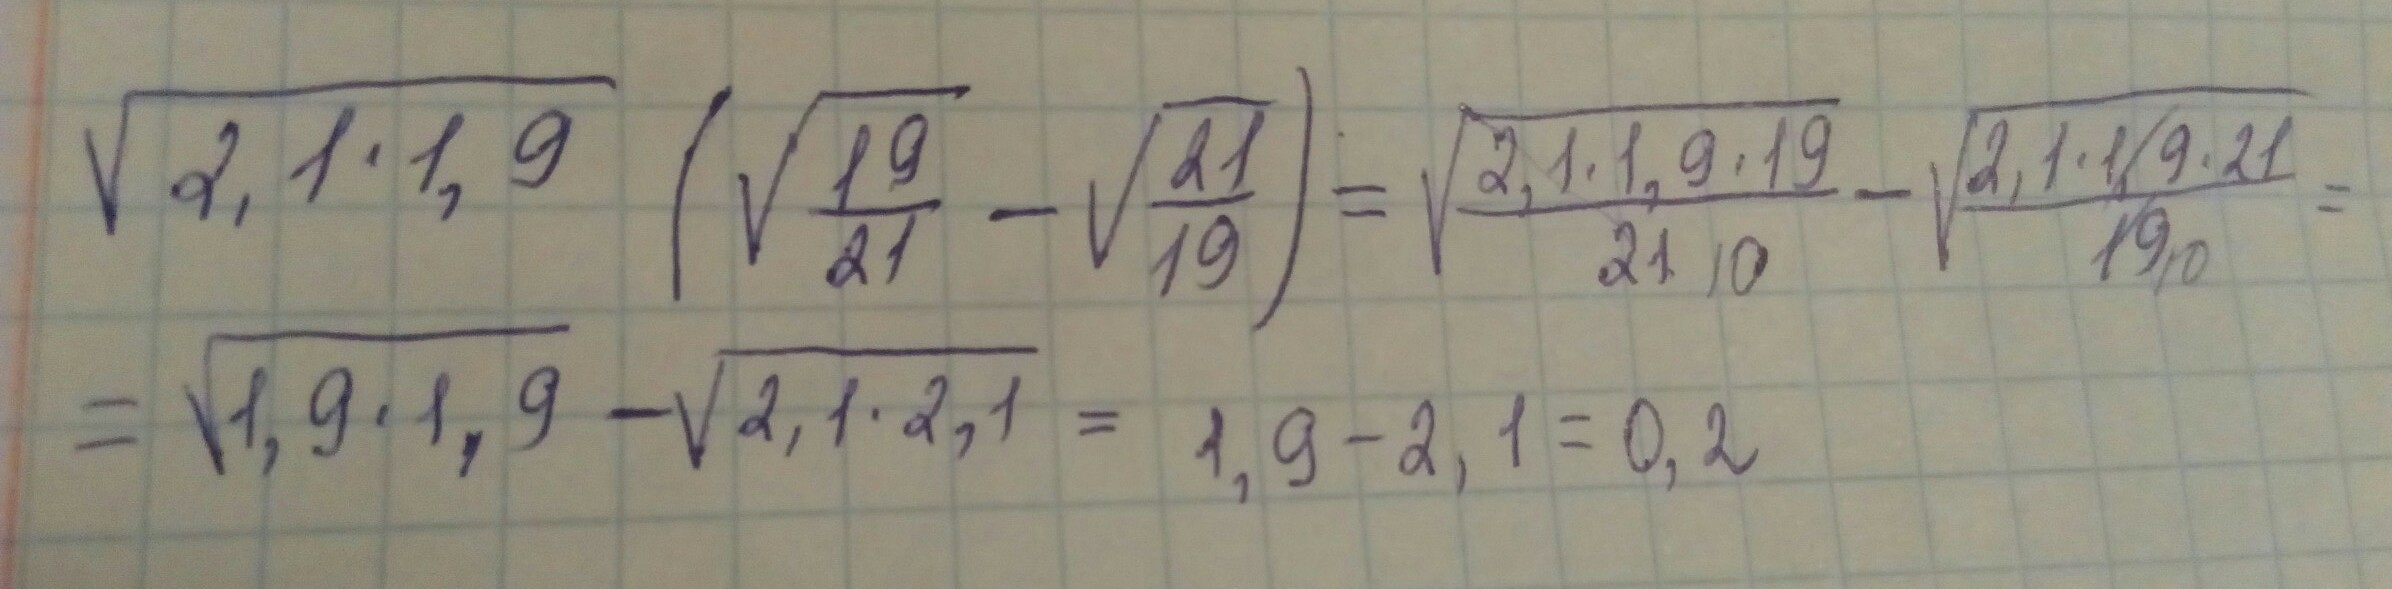 √(2,1·1,9) (√(19/21) − √(21/19)) = √((2,1·1,9·19)/(21 10)) − √((2,1·1,9·21)/(19 10)) =
= √(1,9·1,9) − √(2,1·2,1) = 1,9 − 2,1 = 0,2